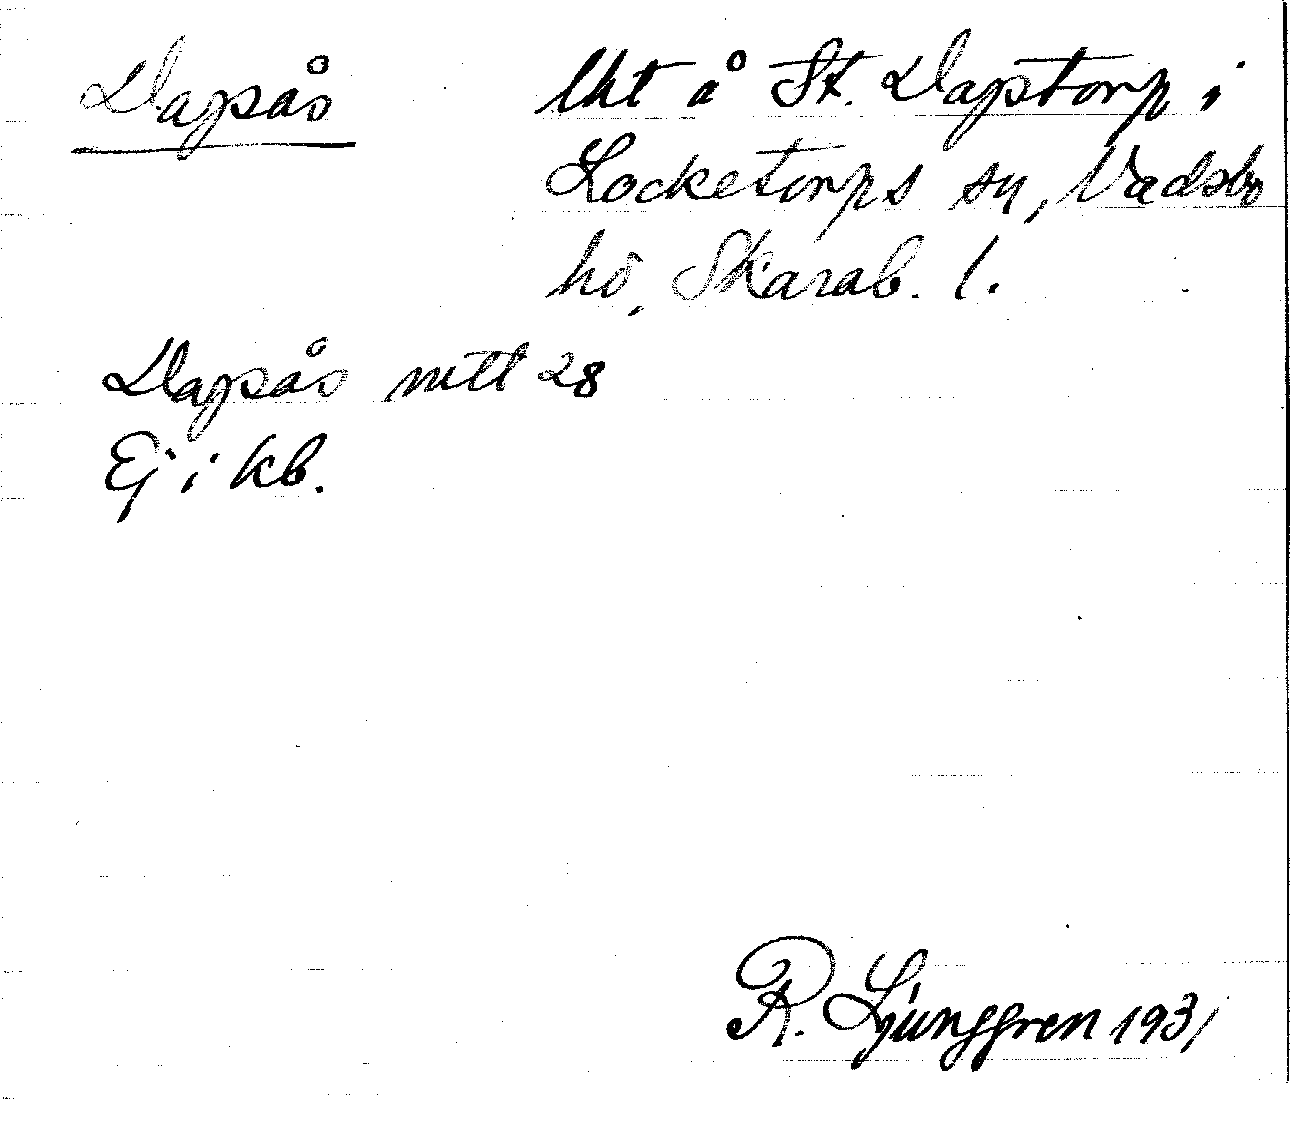 Dapsås
Lht å St. Daptorp i
Locketorps sn, Vadsbo
hd, Skarab. l.
Dapsås mtl 28
Ej i kb.
R. Ljunggren 1931